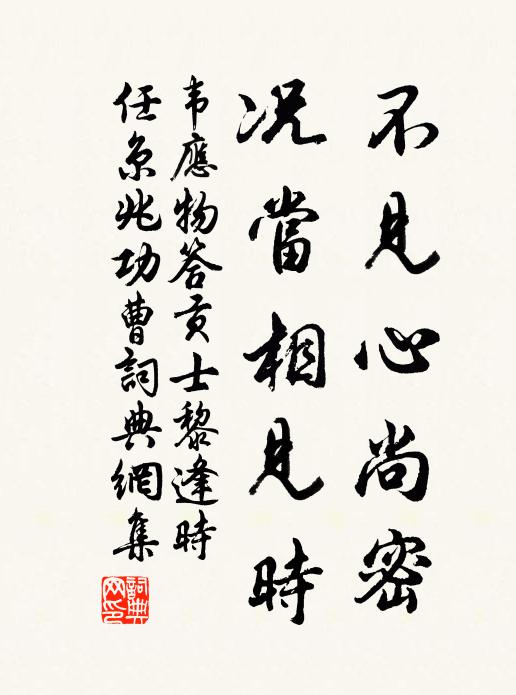 不見心尚密
况當相見時
韦應物答贡士黎逢時
任京兆功曹詞典網集
詞典网印